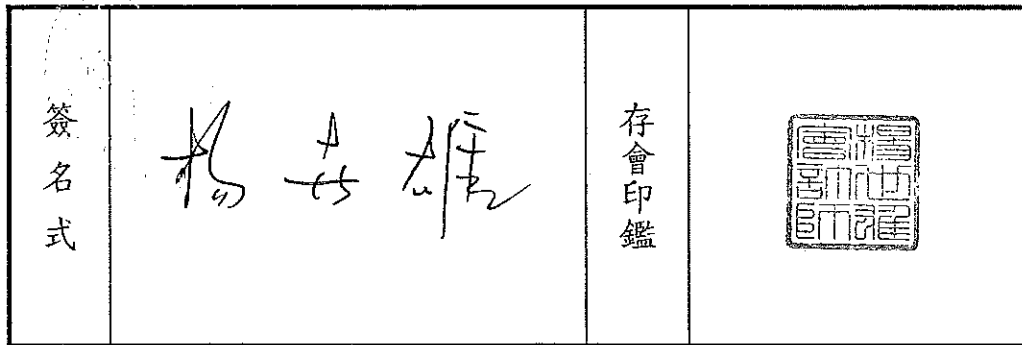 簽名式
楊世雄
存會印鑑
楊世雄
會計師